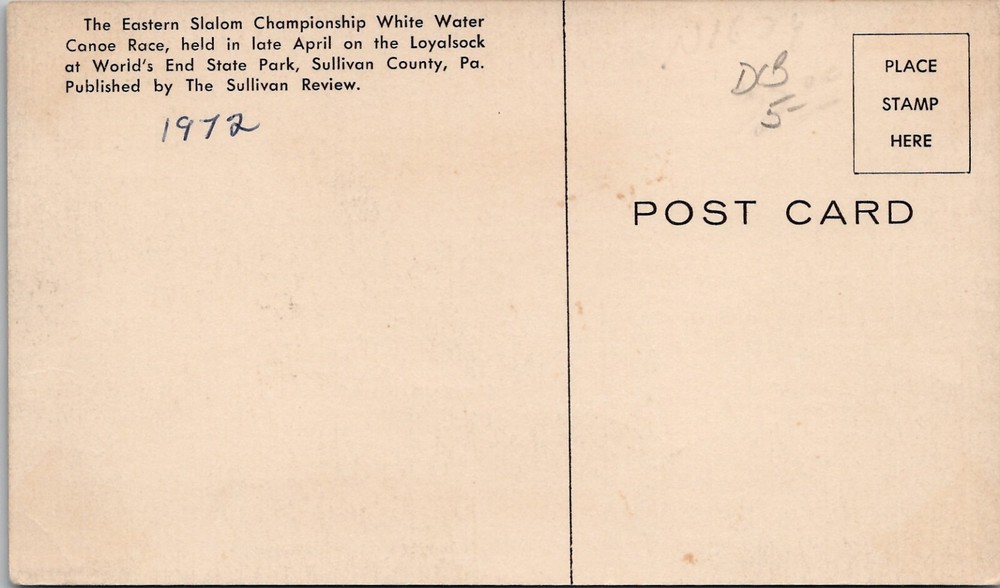 The Eastern Slalom Championship White Water
Canoe Race, held in late April on the Loyalsock
at World's End State Park, Sullivan County, Pa.
Published by The Sullivan Review.
1972
DCB
5-
PLACE
STAMP
HERE
POST CARD